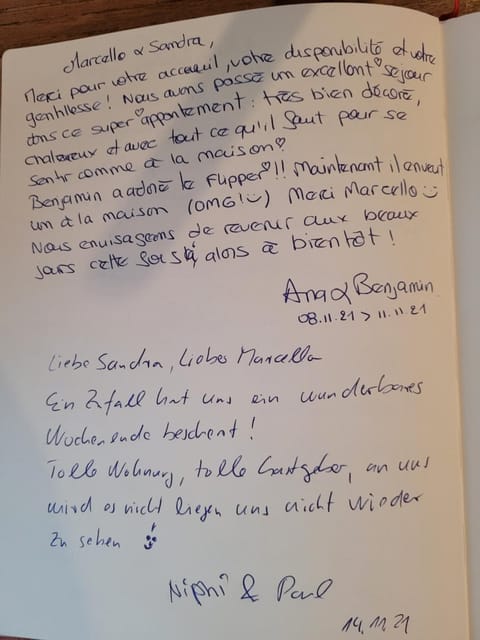 Marcello & Sandra,
Merci pour votre accueil, votre disponibilité et votre
gentillesse! Nous avons passé un excellent séjour
dans ce super♡appartement: très bien décoré,
chaleureux et avec tout ce qu'il faut pour se
sentir comme à la maison♡
Benjamin a adoré le Flipper♡!! Maintenant il en veut
un à la maison (OMG!☺) Merci Marcello☺
Nous envisageons de revenir aux beaux
jours cette fois si, alors à bientôt!
Ana & Benjamin
08.11.21 > 11.11.21
Liebe Sandra, Lieber Marcello
Ein Zufall hat uns ein wunderbares
Wochenende beschert!
Tolle Wohnung, tolle Gastgeber, an uns
wird es nicht liegen uns nicht wieder
zu sehen
& Paul
14.11.21